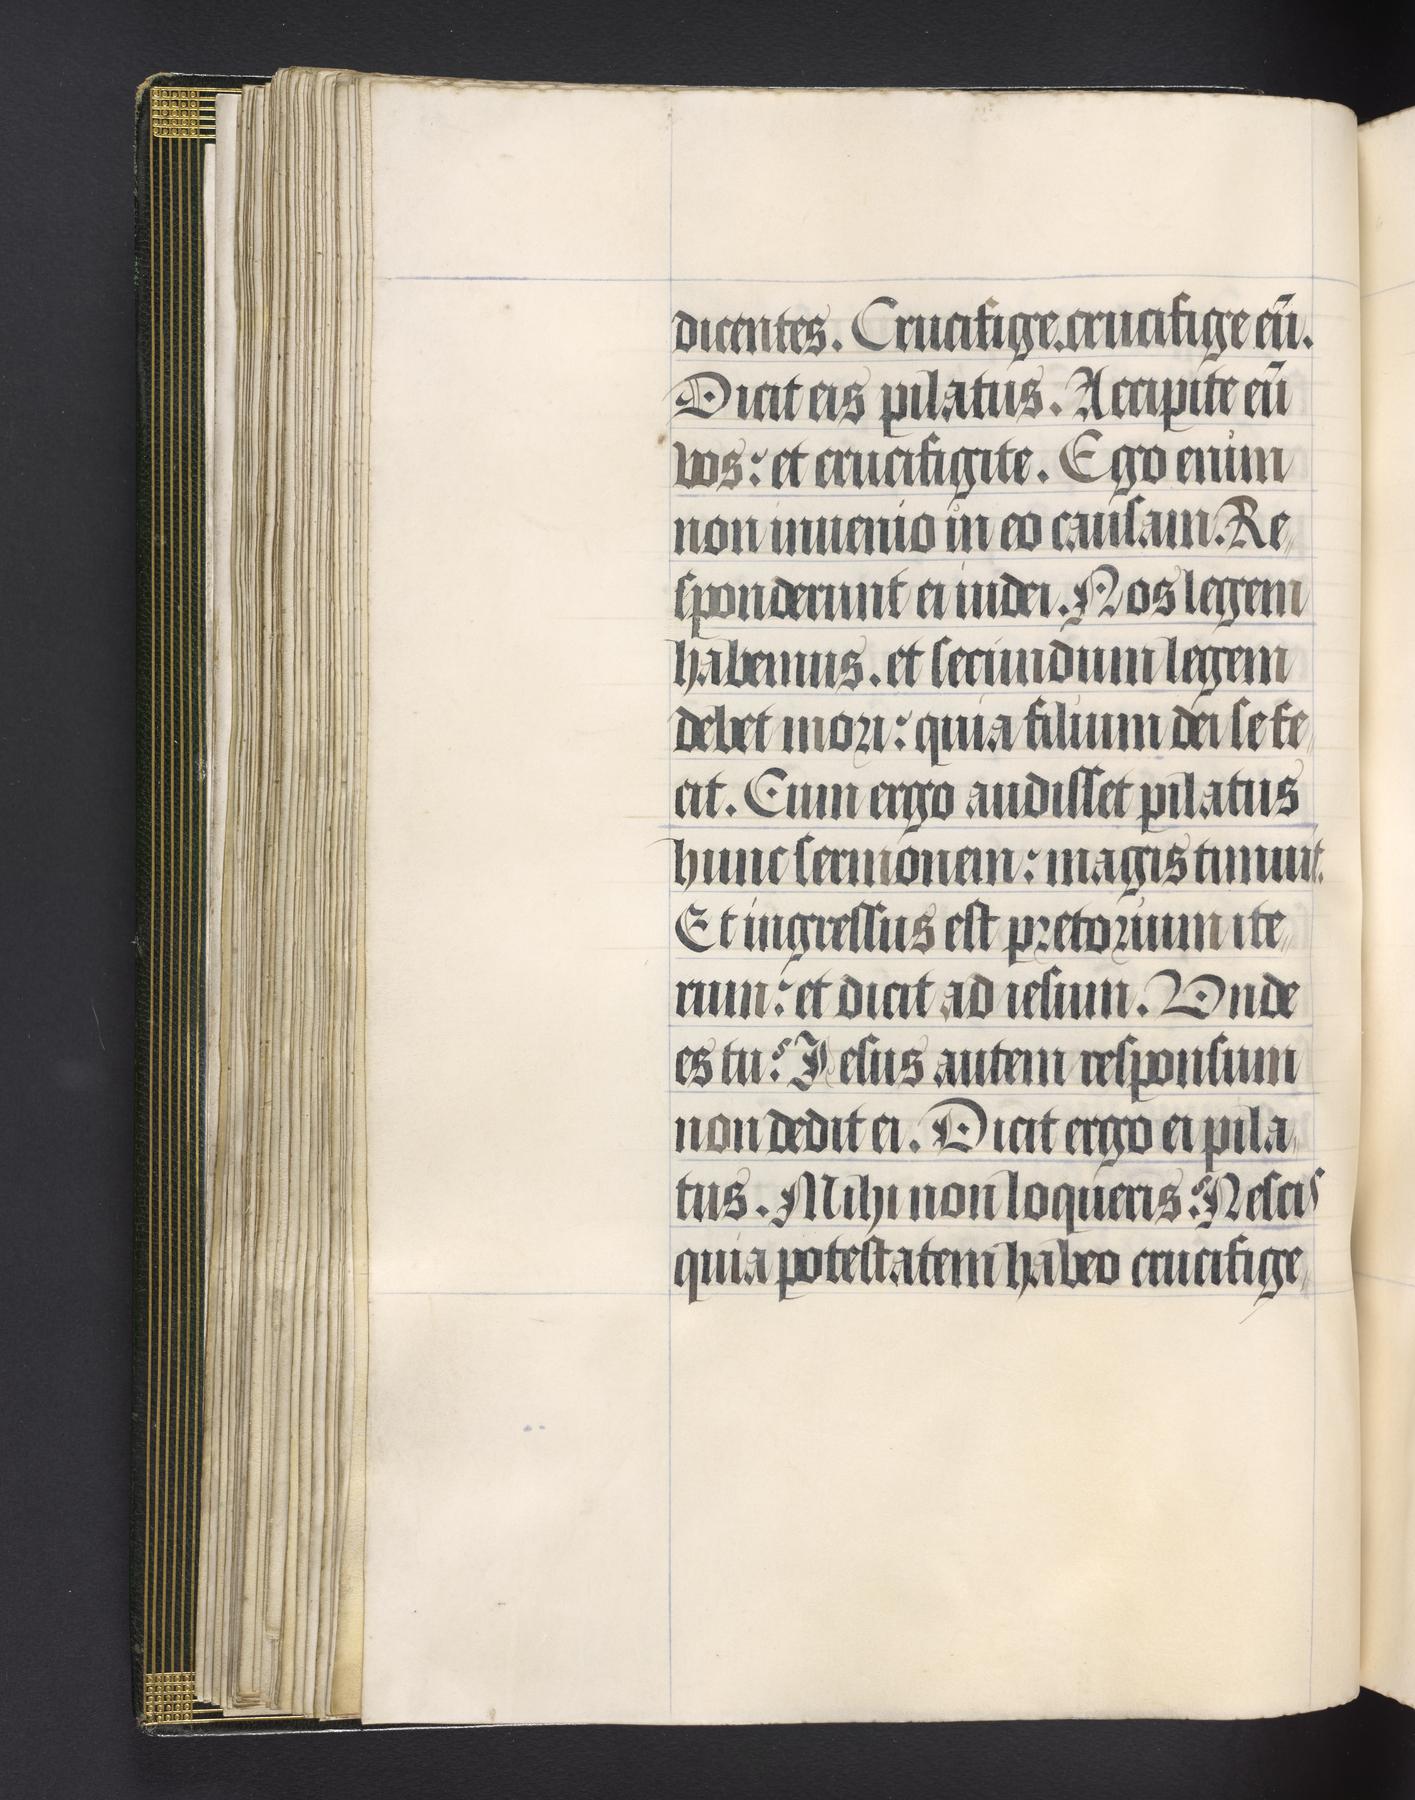 dicentes. Crucifige.crucifige eū.
Dicit eis pilatus. Accipite eū
vos: et crucifigite. Ego enim
non inuenio in eo causam. Re-
sponderunt ei iudei. Nos legem
habemus. et secundum legem
debet mori: quia filium dei se fe-
cit. Cum ergo audisset pilatus
hunc sermonem: magis timuit.
Et ingressus est pretorium ite-
rum: et dicit ad iesum. Vnde
es tu? Jesus autem responsum
non dedit ei. Dicit ergo ei pila-
tus. Mihi non loqueris? Nescis
quia potestatem habeo crucifige-